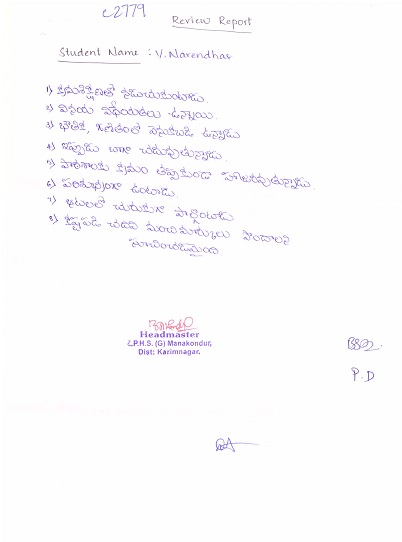 C2779
Review Report
Student Name : V. Narendhar
1) క్రమశిక్షణతో నడుచుకుంటాడు.
2) వినయ విధేయతలు ఉన్నాయి.
3) భౌతిక, గణితంలో వెనుకబడి ఉన్నాడు
4) ఇప్పుడు బాగా చదువుతున్నాడు.
5) పాఠశాలకు క్రమం తప్పకుండా హాజరవుతున్నాడు.
6) పరిశుభ్రంగా ఉంటాడు.
7) ఆటలలో చురుకుగా పాల్గొంటాడు
8) కష్టపడి చదివి మంచి మార్కులు పొందాలని
సూచించడమైంది
Headmaster
Z.P.H.S. (G) Manakondur,
Dist: Karimnagar.
P.D